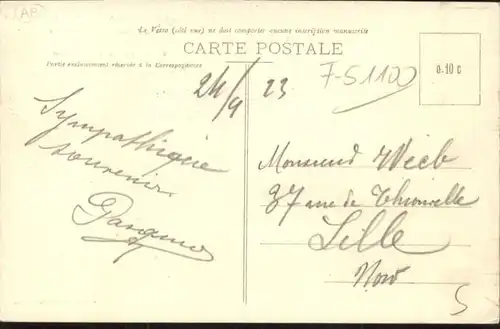 (AF)
Le Verso (côté vue) ne doit comporter aucune inscription manuscrite
CARTE POSTALE
Partie exclusivement réservée à la Correspondance
24/9 23
F-51100
0.10 c
Sympathique
souvenir
Monsieur
37 rue de Thionville
Lille
Nord
5